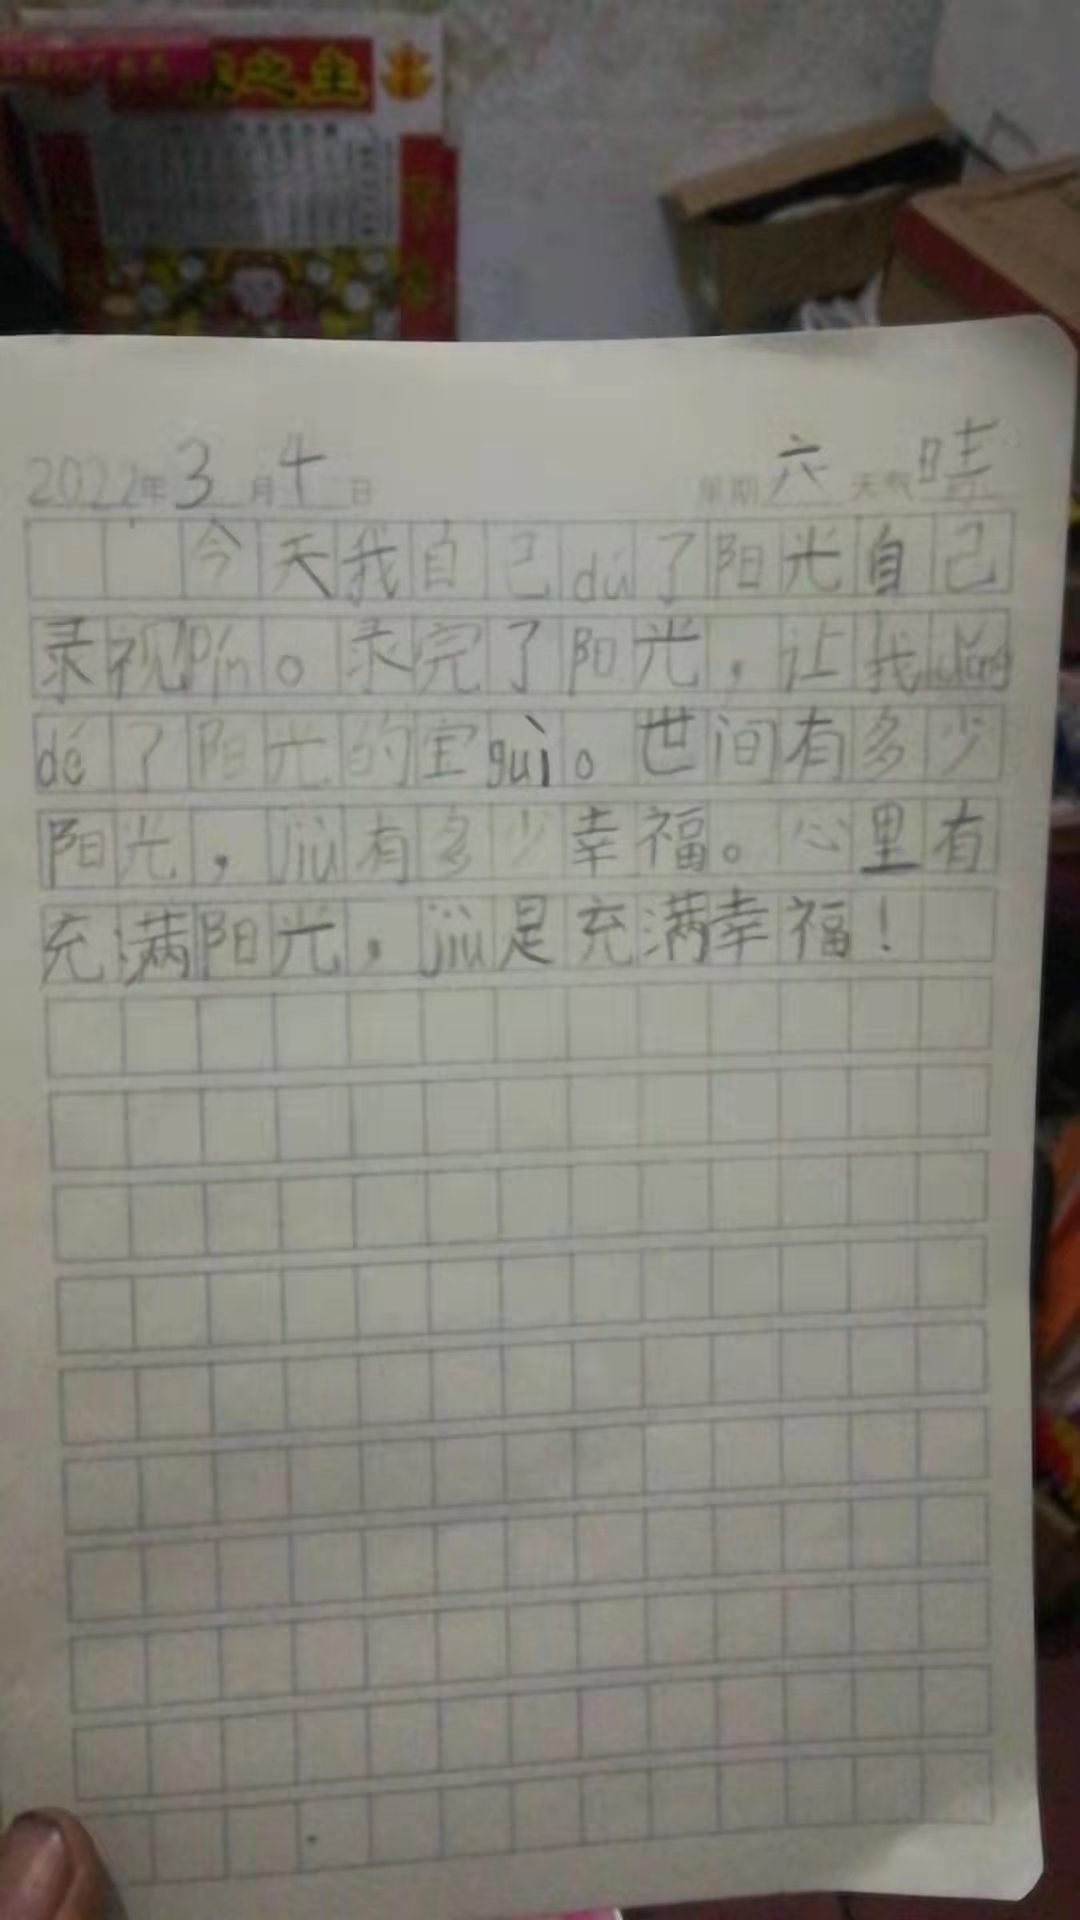 之宝
2022年3月4日 星期六 天气晴
今天我自己dú了阳光自己
录视pín。录完了阳光，让我dǒng
dé了阳光的宝guì。世间有多少
阳光，jiù有多少幸福。心里有
充满阳光，jiù是充满幸福！